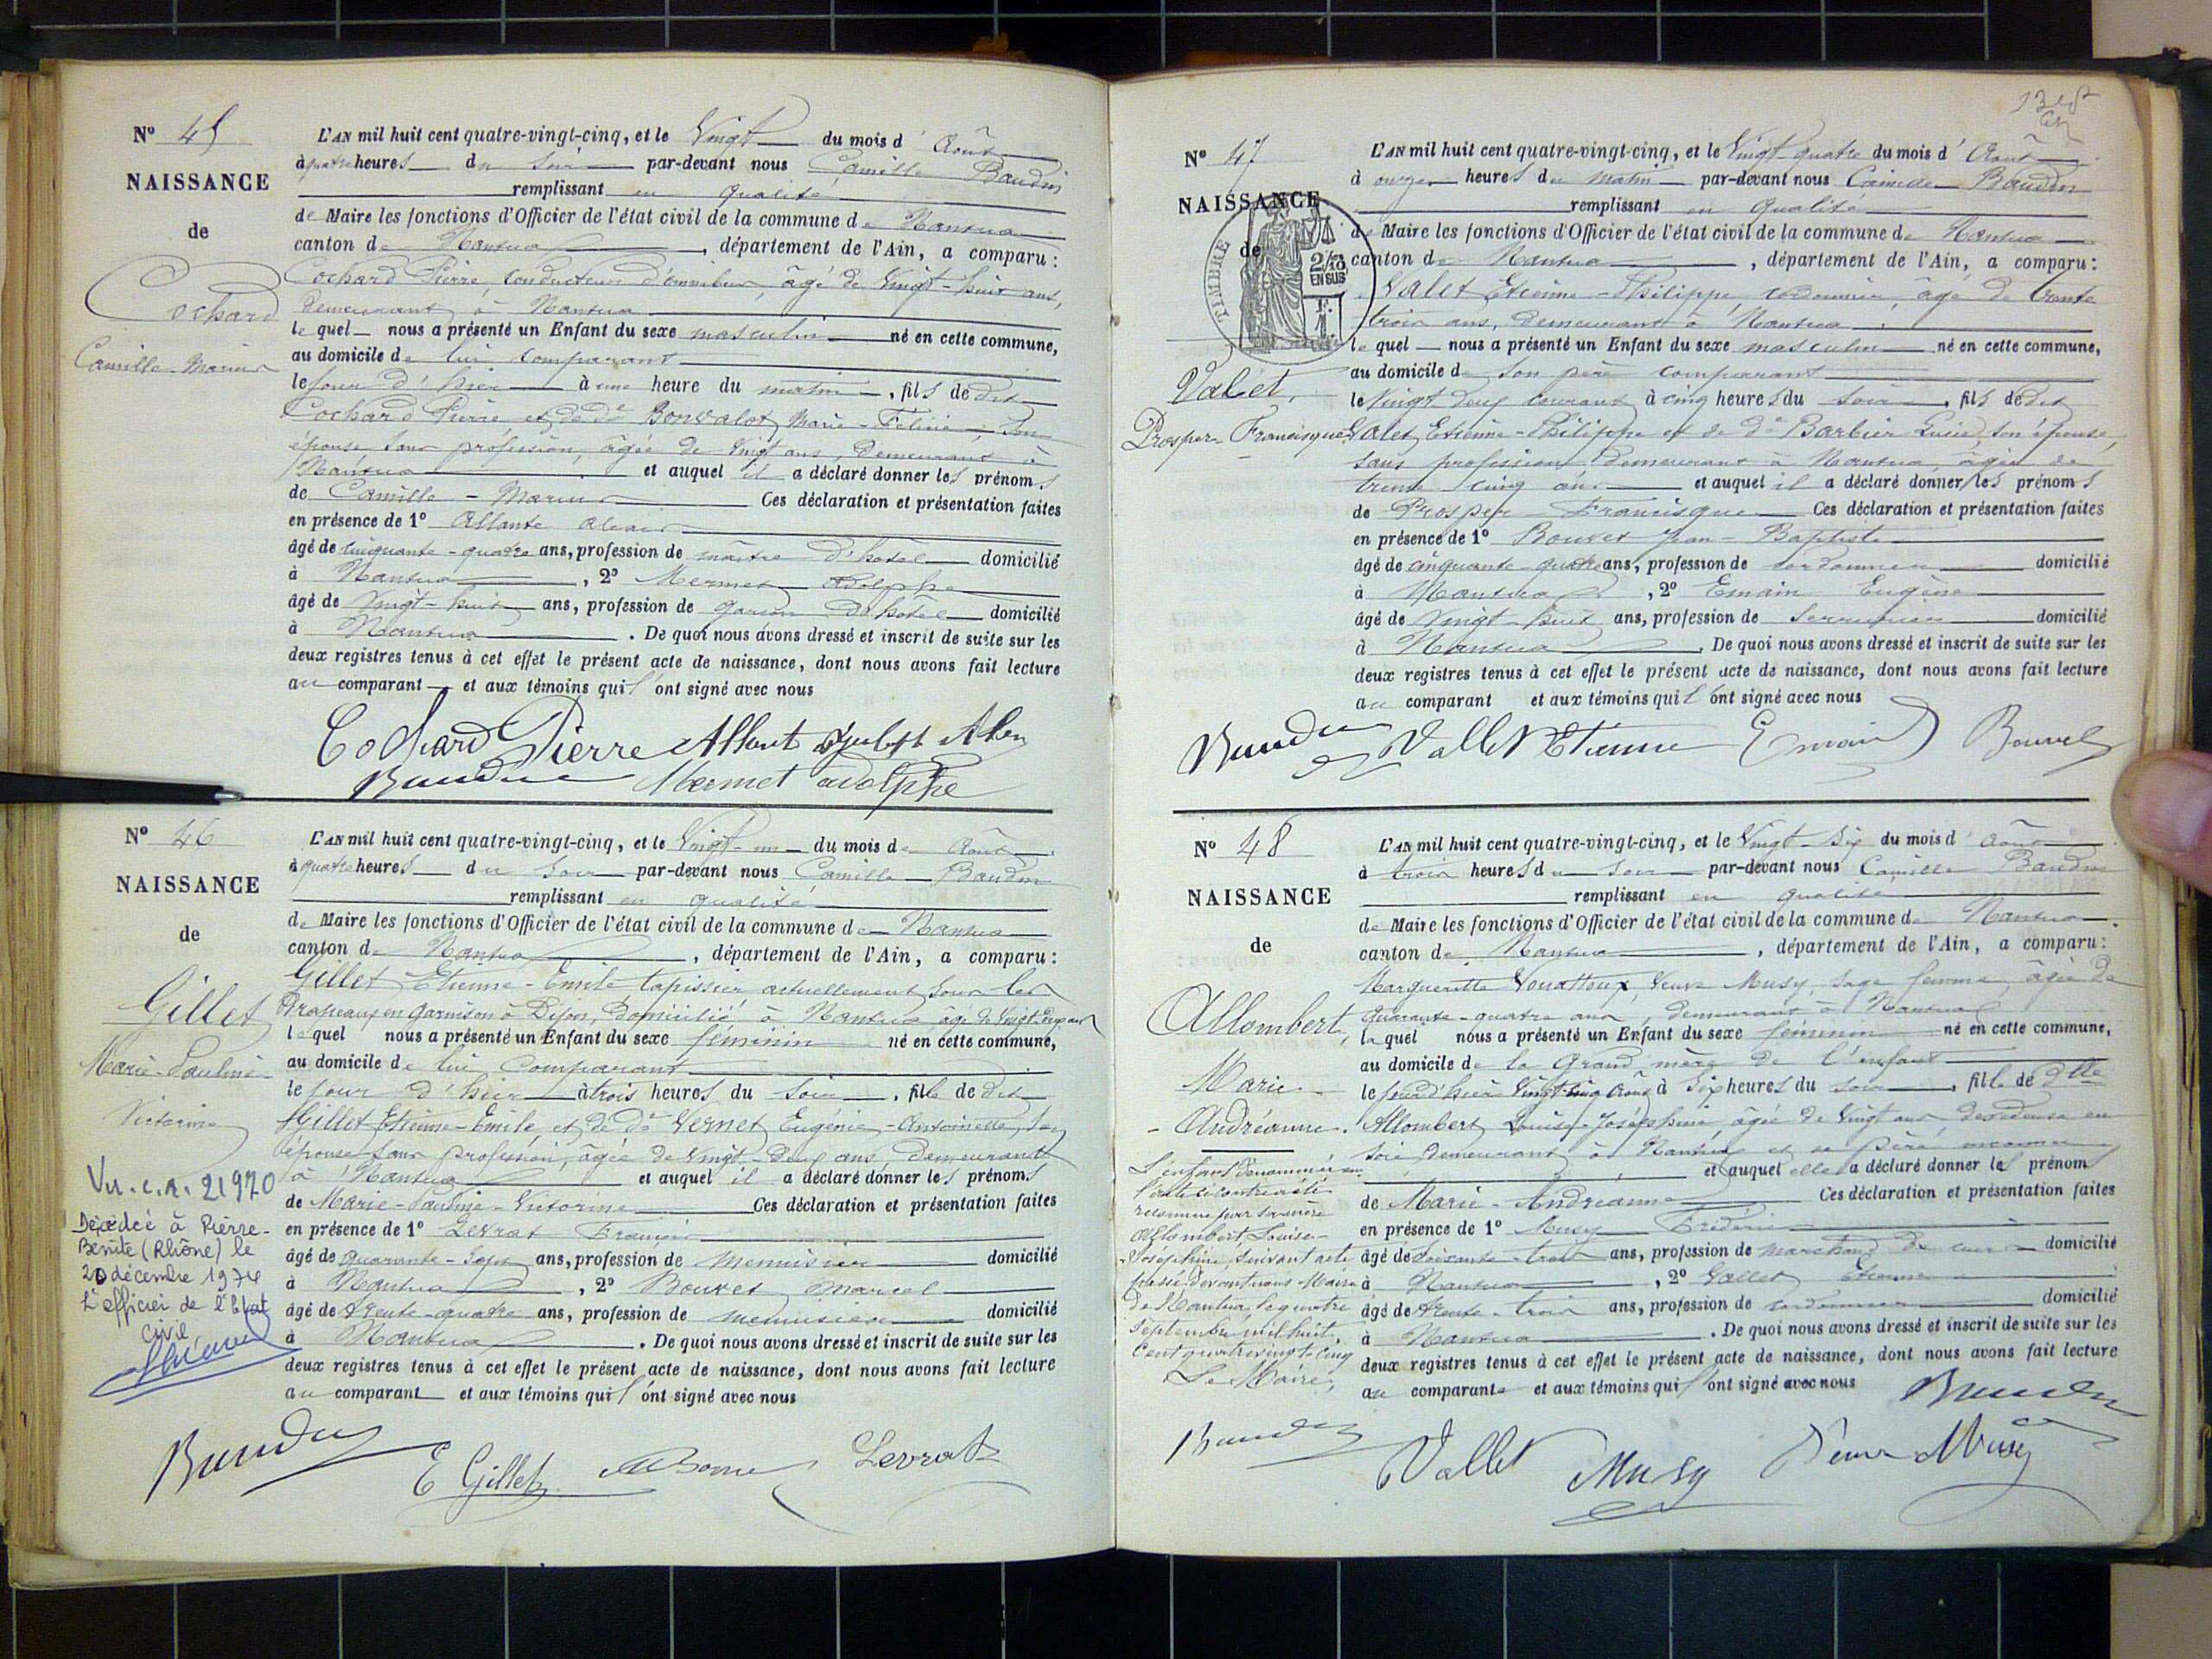 N° 45
NAISSANCE
de
Cochard
Camille-Marius
L'AN mil huit cent quatre-vingt-cinq, et le Vingt du mois d' Août
à quatre heures du soir par-devant nous Camille Baudin
remplissant en qualité
de Maire les fonctions d'Officier de l'état civil de la commune de Nantua
canton de Nantua, département de l'Ain, a comparu :
Cochard Pierre, conducteur d'omnibus, âgé de Vingt-huit ans,
demeurant à Nantua
lequel nous a présenté un Enfant du sexe masculin né en cette commune,
au domicile de lui comparant
le jour d'hier à une heure du matin, fils de dit
Cochard Pierre, et de de Bonvalot, Marie-Félicie, son
épouse sans profession, âgée de Vingt ans, demeurant à
Nantua et auquel il a déclaré donner les prénoms
de Camille-Marius Ces déclaration et présentation faites
en présence de 1° Allante
âgé de cinquante-quatre ans, profession de maître d'hôtel domicilié
à Nantua, 2° Mermet Adolphe
âgé de Vingt-huit ans, profession de garçon d'hôtel domicilié
à Nantua. De quoi nous avons dressé et inscrit de suite sur les
deux registres tenus à cet effet le présent acte de naissance, dont nous avons fait lecture
au comparant et aux témoins qui l'ont signé avec nous
Cochard Pierre
Baudin Mermet adolphe
N° 46
NAISSANCE
de
Gillet
Marie-Pauline-
Victorine
Vu. c. n. 21970
Décédée à Pierre-
Bénite (Rhône) le
20 décembre 1974
L'officier de l'Etat
civil
L'AN mil huit cent quatre-vingt-cinq, et le Vingt-un du mois de Août
à quatre heures du soir par-devant nous Camille Baudin
remplissant en qualité
de Maire les fonctions d'Officier de l'état civil de la commune de Nantua
canton de Nantua, département de l'Ain, a comparu :
Gillet Etienne-Emile tapissier actuellement sous les
Drapeaux en garnison à Dijon, domicilié à Nantua âgé de Vingt-deux ans
lequel nous a présenté un Enfant du sexe féminin né en cette commune,
au domicile de lui Comparant
le jour d'hier à trois heures du soir, fille de dit
Gillet Etienne-Emile, et de de Vernet Eugénie-Antoinette, son
épouse sans profession, âgée de Vingt-deux ans, demeurant
à Nantua et auquel il a déclaré donner les prénoms
de Marie-Pauline-Victorine Ces déclaration et présentation faites
en présence de 1° Levrat François
âgé de quarante-sept ans, profession de menuisier domicilié
à Nantua, 2° Bouvet Marcel
âgé de trente-quatre ans, profession de menuisier domicilié
à Nantua. De quoi nous avons dressé et inscrit de suite sur les
deux registres tenus à cet effet le présent acte de naissance, dont nous avons fait lecture
au comparant et aux témoins qui l'ont signé avec nous
Baudin E Gillet Levrat
N° 47
NAISSANCE
de
TIMBRE
2/10
EN SUS
Valet,
Prosper-Francisque
L'AN mil huit cent quatre-vingt-cinq, et le Vingt-quatre du mois d' Août
à onze heures du matin par-devant nous Camille Baudin
remplissant en qualité
de Maire les fonctions d'Officier de l'état civil de la commune de Nantua
canton de Nantua, département de l'Ain, a comparu :
Valet Etienne-Philippe, cordonnier, âgé de trente
trois ans, demeurant à Nantua
lequel nous a présenté un Enfant du sexe masculin né en cette commune,
au domicile de son père comparant
le Vingt-deux courant à cinq heures du soir, fils de dit
Valet, Etienne-Philippe et de de Barbier Lucie, son épouse,
sans profession, demeurant à Nantua, âgée de
trente cinq ans et auquel il a déclaré donner les prénoms
de Prosper-Francisque Ces déclaration et présentation faites
en présence de 1° Bouvet Jean-Baptiste
âgé de cinquante-quatre ans, profession de cordonnier domicilié
à Nantua, 2° Emain Eugène
âgé de Vingt-huit ans, profession de Serrurier domicilié
à Nantua. De quoi nous avons dressé et inscrit de suite sur les
deux registres tenus à cet effet le présent acte de naissance, dont nous avons fait lecture
au comparant et aux témoins qui l'ont signé avec nous
Baudin Vallet Etienne Emain Bouvet
N° 48
NAISSANCE
de
Allombert,
Marie
- Andréanne.
L'enfant dénommé en
l'acte ci contre a été
reconnue par sa mère
Allombert, Louise-
Joséphine, suivant acte
passé devant nous Maire
de Nantua, le quatre
septembre mil huit
cent quatre vingt-cinq
Le Maire,
Baudin
L'AN mil huit cent quatre-vingt-cinq, et le Vingt-Six du mois d' Août
à trois heures du soir par-devant nous Camille Baudin
remplissant en qualité
de Maire les fonctions d'Officier de l'état civil de la commune de Nantua
canton de Nantua, département de l'Ain, a comparu :
Marguerite Vouattoux, Veuve Musy, sage femme, âgée de
quarante-quatre ans, demeurant à Nantua
laquel nous a présenté un Enfant du sexe féminin né en cette commune,
au domicile de la Grand mère de l'enfant
le jour d'hier Vingt-cinq Août à Six heures du soir, fille de Dlle
Allombert, Louise-Joséphine, âgée de Vingt ans, dévideuse en
soie, demeurant à Nantua et de père inconnu
et auquel elle a déclaré donner les prénoms
de Marie-Andréanne Ces déclaration et présentation faites
en présence de 1° Musy Frédéric
âgé de soixante-trois ans, profession de marchand de cuir domicilié
à Nantua, 2° Vallet Etienne
âgé de trente-trois ans, profession de cordonnier domicilié
à Nantua. De quoi nous avons dressé et inscrit de suite sur les
deux registres tenus à cet effet le présent acte de naissance, dont nous avons fait lecture
au comparante et aux témoins qui l'ont signé avec nous Baudin
Vallet Musy Veuve Musy